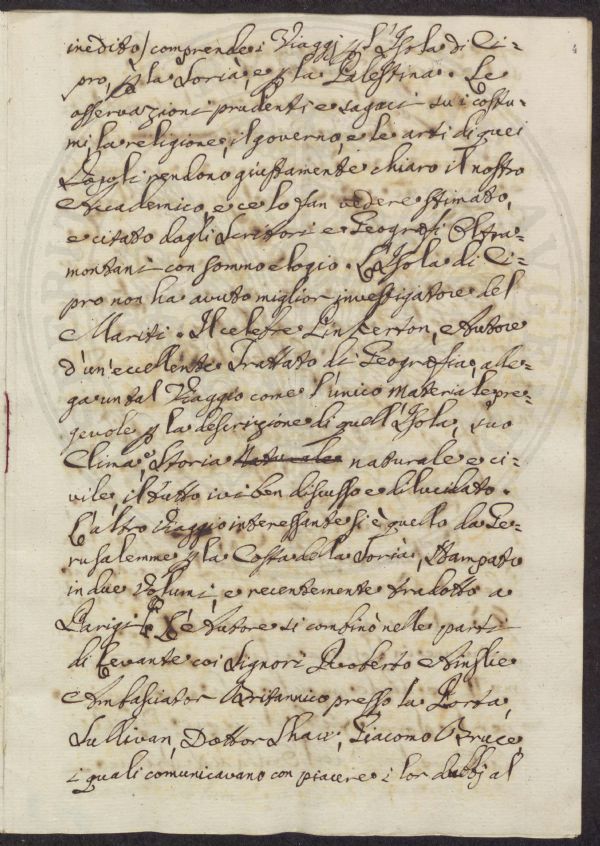 inedito) comprende i Viaggj p l'Isola di Ci-
pro, p la Sorìa, e p la Palestina. Le
osservazioni prudenti e sagaci su i costu-
mi la religione, il governo, e le arti di quei
Popoli rendono giustamente chiaro il nostro
Accademico, e ce lo fan vedere stimato,
e citato dagli Scrittori e Geografi Oltra-
montani con sommo elogio. L'Isola di Ci-
pro non ha avuto miglior investigatore del
Mariti. Il celebre Pinkerton, Autore
d'un'eccellente Trattato di Geografia, alle-
ga un tal Viaggio come l'unico materiale pre-
gevole p la descrizione di quell'Isola, suo
Clima, e Storia naturale e ci-
vile, il tutto ivi ben discusso e dilucidato.
L'altro Viaggio interessante si è quello da Ge-
rusalemme p la Costa della Sorìa, Stampato
in due Volumi, e recentemente tradotto a
Parigi. L'Autore si combinò nelle parti
di Levante coi Signori Roberto Ainslie
Ambasciator Britannico presso la Porta,
Sullivan, Dottor Shaw, Giacomo Bruce,
i quali comunicavano con piacere i lor dubbj al
4